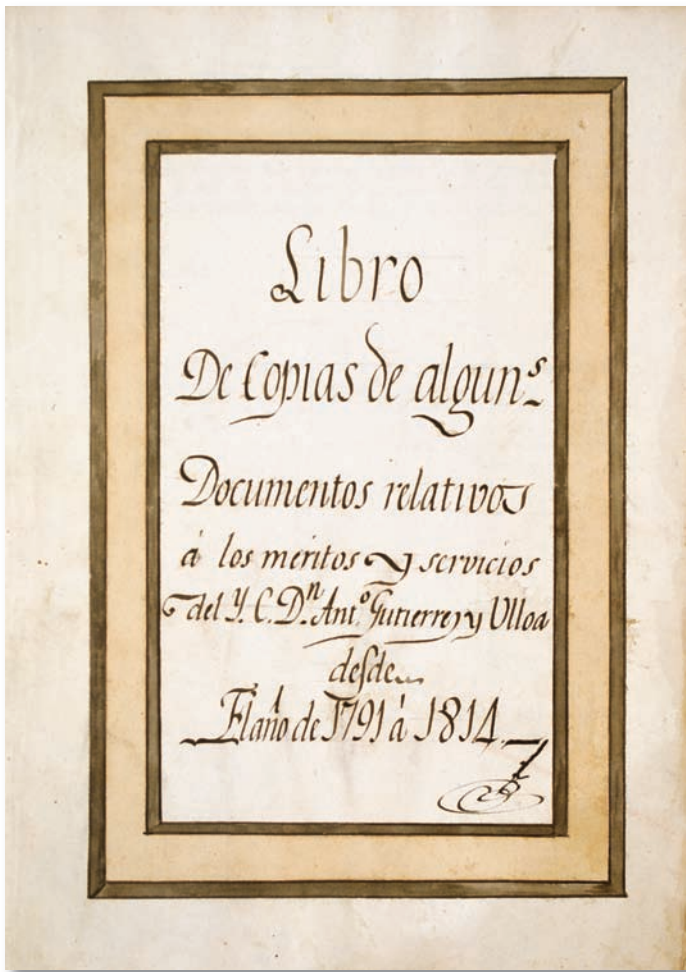 Libro
De Copias de algunˢ
Documentos relativos
á los meritos y servicios
del Y. C. Dⁿ Antᵒ. Gutierrez y Ulloa
deſde
El año de 1791 á 1814.